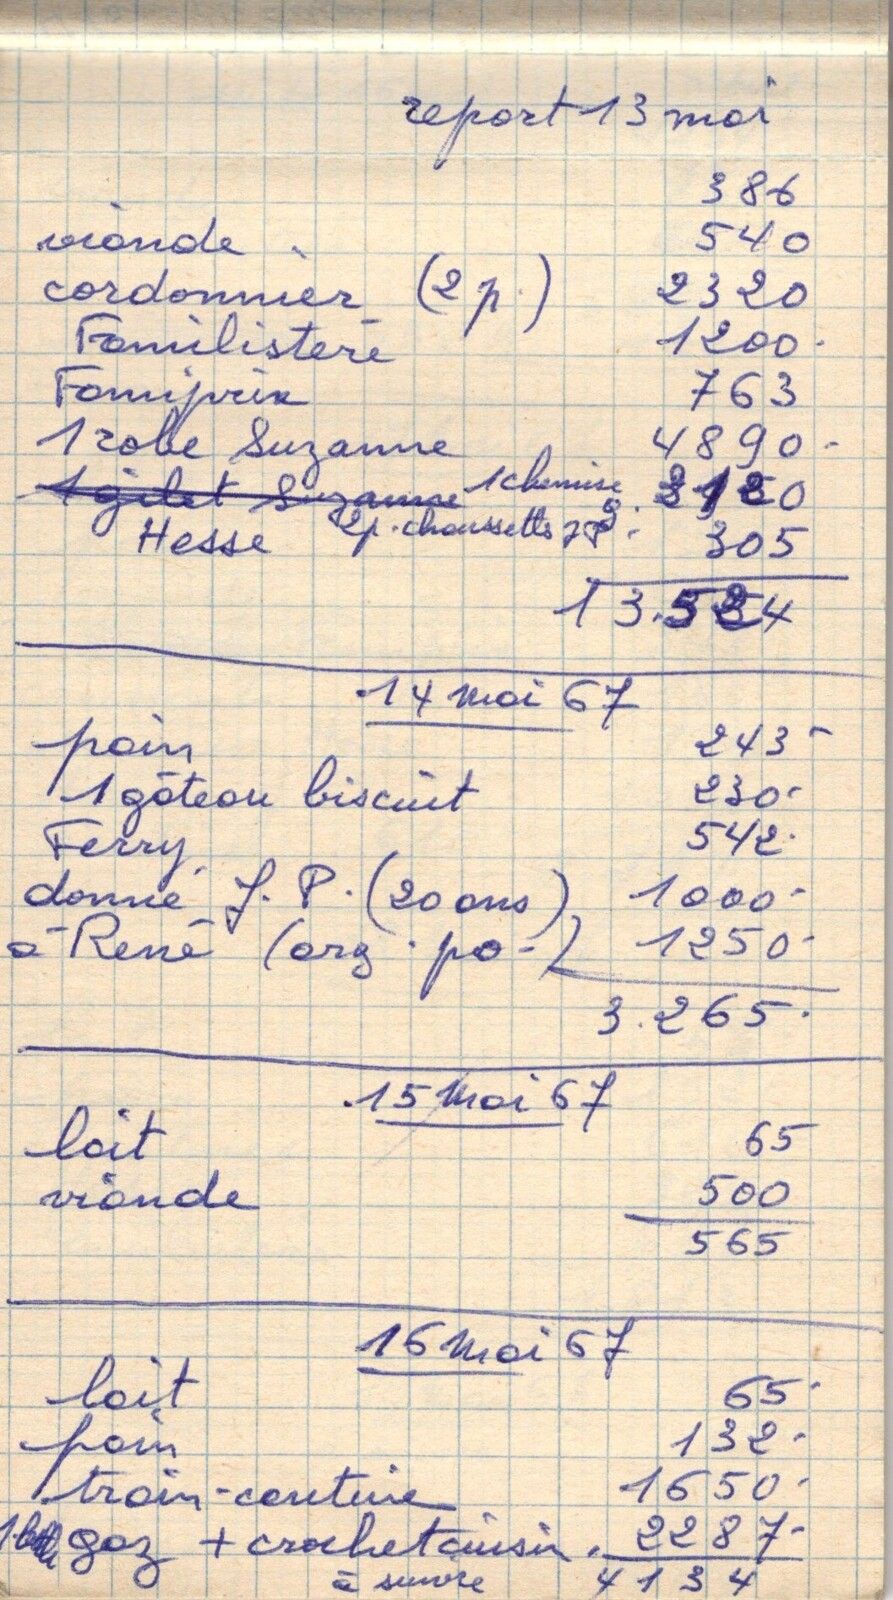 report 13 mai
386
viande 540
cordonnier (2 p.) 2320
Familistère 1200
Famiprix 763
1 robe Suzanne 4890
1 gilet Suzanne 1 chemise 3120
Hesse 2 p. chaussetts J P 305
13.524
14 mai 67
pain 243
1 gâteau biscuit 230
Ferry 542
donné J. P. (20 ans) 1000
à René (arg. po-) 1250
3.265
15 mai 67
lait 65
viande 500
565
16 mai 67
lait 65
pain 132
train-couture 1650
gaz + crochet cuisin. 2287
à suivre 4134